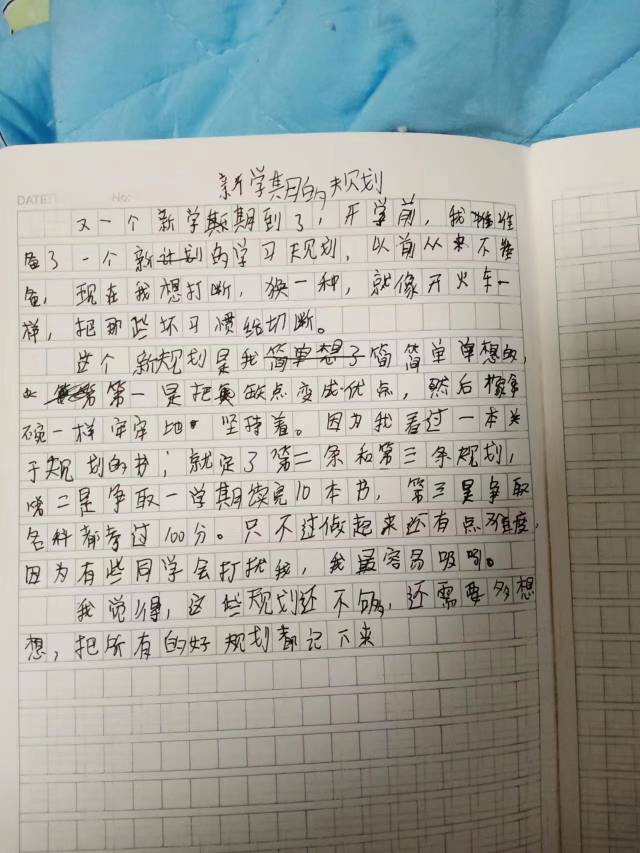 DATE: No:
新学期的规划
又一个新学期到了，开学前，我准
备了一个新的学习规划，以前从来不准
备，现在我想打断，换一种，就像开火车一
样，把那些坏习惯给切断。
这个新规划是我简简单单想的，
第一是把缺点变成优点，然后像
碗一样牢牢地坚持着。因为我看过一本关
于规划的书；就定了第二条和第三条规划，
第二是争取一学期读完10本书，第三是争取
各科都考过100分。只不过做起来还有点难度，
因为有些同学会打扰我，我最容易吸
我觉得，这些规划还不够，还需要多想
想，把所有的好规划都记下来